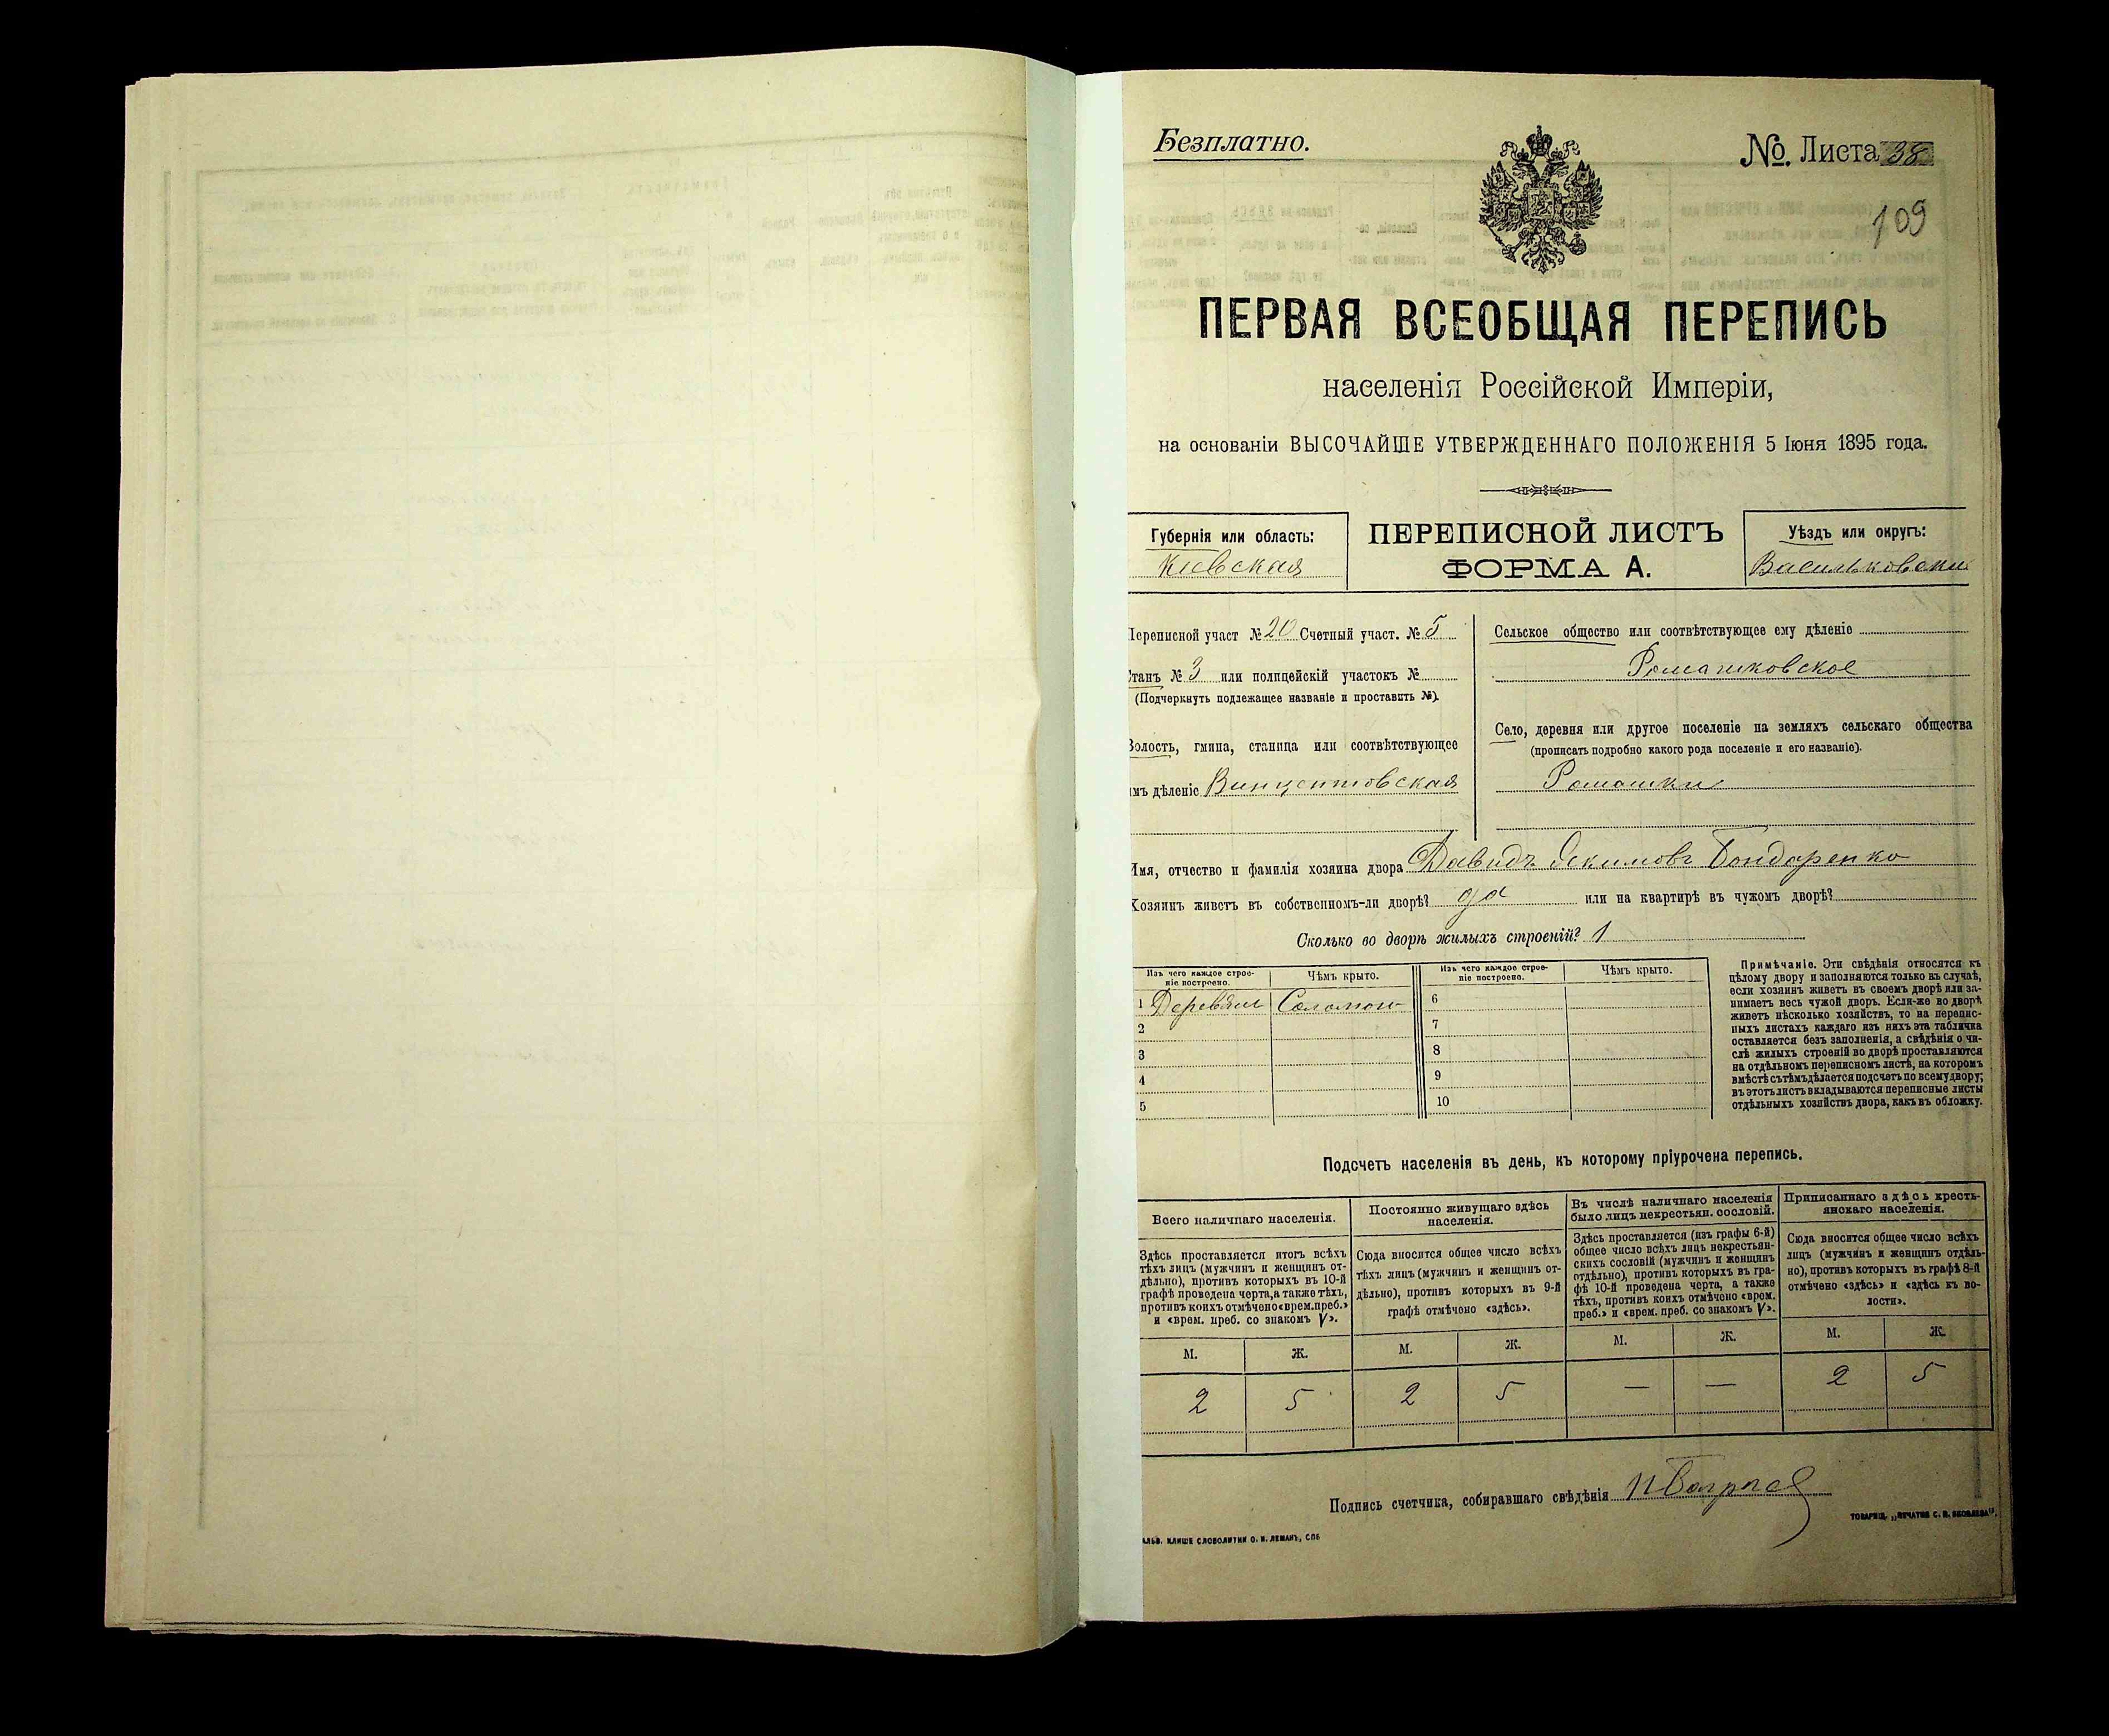 Безплатно.
№ Листа 38
109
ПЕРВАЯ ВСЕОБЩАЯ ПЕРЕПИСЬ
населенія Россійской Имперіи,
на основаніи ВЫСОЧАЙШЕ УТВЕРЖДЕННАГО ПОЛОЖЕНІЯ 5 Іюня 1895 года.
Губернія или область:
Кіевская
ПЕРЕПИСНОЙ ЛИСТЪ
ФОРМА А.
Уѣздъ или округъ:
Васильковски
Переписной участ №20 Счетный участ. № 5
Станъ № 3 или полицейскій участокъ №
(Подчеркнуть подлежащее названіе и проставить №).
Волость, гмина, станица или соотвѣтствующее
имъ дѣленіе Винцентовская
Сельское общество или соотвѣтствующее ему дѣленіе
Ромашковское
Село, деревня или другое поселеніе на земляхъ сельскаго общества
(прописать подробно какого рода поселеніе и его названіе).
Ромашки
Имя, отчество и фамилія хозяина двора Давидъ Якимовъ Бондаренко
Хозяинъ живетъ въ собственномъ-ли дворѣ? да или на квартирѣ въ чужомъ дворѣ?
Сколько во дворѣ жилыхъ строеній? 1
Изъ чего каждое строе-
ніе построено.
Чѣмъ крыто.
Изъ чего каждое строе-
ніе построено.
Чѣмъ крыто.
1 Деревян Соломою 6
2 7
3 8
4 9
5 10
Примѣчаніе. Эти свѣдѣнія относятся къ
цѣлому двору и заполняются только въ случаѣ,
если хозяинъ живетъ въ своемъ дворѣ или за-
нимаетъ весь чужой дворъ. Если-же во дворѣ
живетъ нѣсколько хозяйствъ, то на перепис-
ныхъ листахъ каждаго изъ нихъ эта табличка
оставляется безъ заполненія, а свѣдѣнія о чи-
слѣ жилыхъ строеній во дворѣ проставляются
на отдѣльномъ переписномъ листѣ, на которомъ
вмѣстѣ съ тѣмъ дѣлается подсчетъ по всему двору;
въ этотъ листъ вкладываются переписные листы
отдѣльныхъ хозяйствъ двора, какъ въ обложку.
Подсчетъ населенія въ день, къ которому пріурочена перепись.
Всего наличнаго населенія.
Здѣсь проставляется итогъ всѣхъ
тѣхъ лицъ (мужчинъ и женщинъ от-
дѣльно), противъ которыхъ въ 10-й
графѣ проведена черта, а также тѣхъ,
противъ коихъ отмѣчено «врем. преб.»
и «врем. преб. со знакомъ V».
М. Ж.
2 5
Постоянно живущаго здѣсь
населенія.
Сюда вносится общее число всѣхъ
тѣхъ лицъ (мужчинъ и женщинъ от-
дѣльно), противъ которыхъ въ 9-й
графѣ отмѣчено «здѣсь».
М. Ж.
2 5
Въ числѣ наличнаго населенія
было лицъ некрестьян. сословій.
Здѣсь проставляется (изъ графы 6-й)
общее число всѣхъ лицъ некрестьян-
скихъ сословій (мужчинъ и женщинъ
отдѣльно), противъ которыхъ въ гра-
фѣ 10-й проведена черта, а также
тѣхъ, противъ коихъ отмѣчено «врем.
преб.» и «врем. преб. со знакомъ V».
М. Ж.
— —
Приписаннаго здѣсь кресть-
янскаго населенія.
Сюда вносится общее число всѣхъ
лицъ (мужчинъ и женщинъ отдѣль-
но), противъ которыхъ въ графѣ 8-й
отмѣчено «здѣсь» и «здѣсь къ во-
лости».
М. Ж.
2 5
Подпись счетчика, собиравшаго свѣдѣнія
АЛЬВ. КЛИШЕ СЛОВОЛИТНИ О. И. ЛЕМАНЪ, СПБ
ТОВАРИЩ. „ПЕЧАТНЯ С. П. ЯКОВЛЕВА".